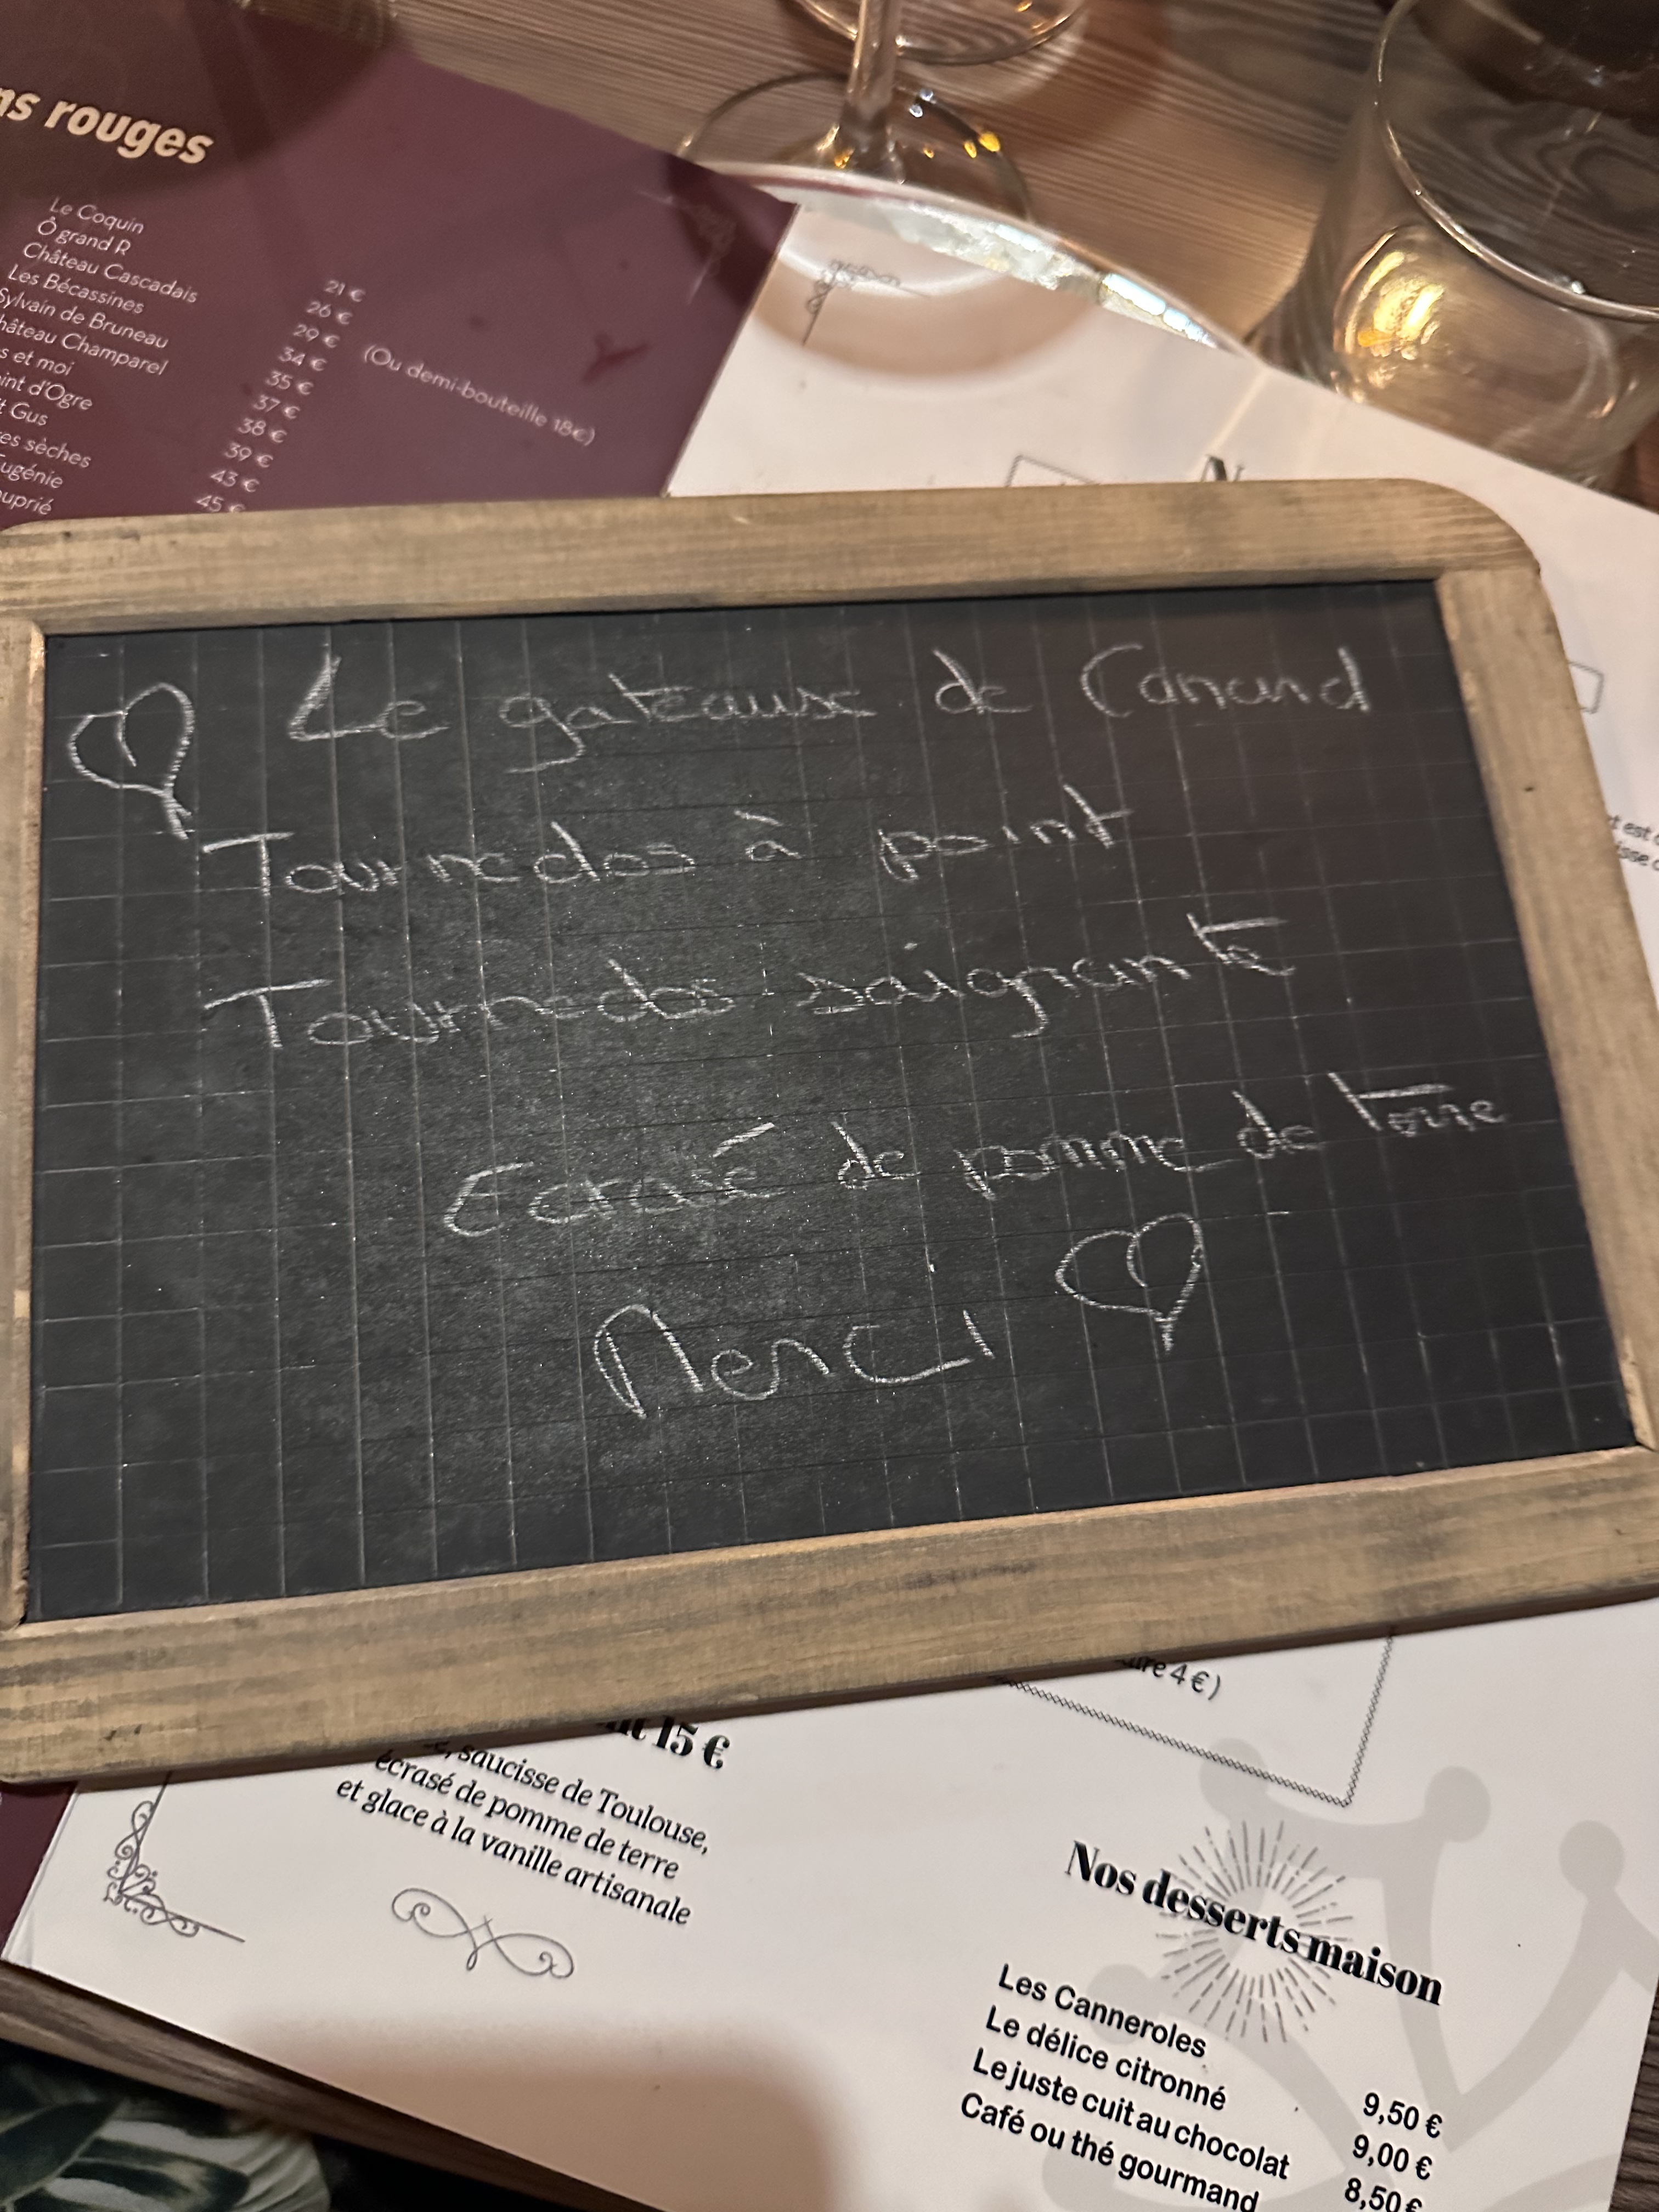 ns rouges
Le Coquin
Ô grand R
Château Cascadais
Les Bécassines
Sylvain de Bruneau
hâteau Champarel
s et moi
int d'Ogre
t Gus
es sèches
ugénie
uprié
21 €
26 €
29 € (Ou demi-bouteille 18€)
34 €
35 €
37 €
38 €
39 €
43 €
45 €
Le gateaux de Canard
Tournedos à point
Tournedos saignante
Ecrasé de pomme de terre
Merci
t est
isse
ire 4 €)
15 €
saucisse de Toulouse,
écrasé de pomme de terre
et glace à la vanille artisanale
Nos desserts maison
Les Canneroles 9,50 €
Le délice citronné 9,00 €
Le juste cuit au chocolat 8,50 €
Café ou thé gourmand